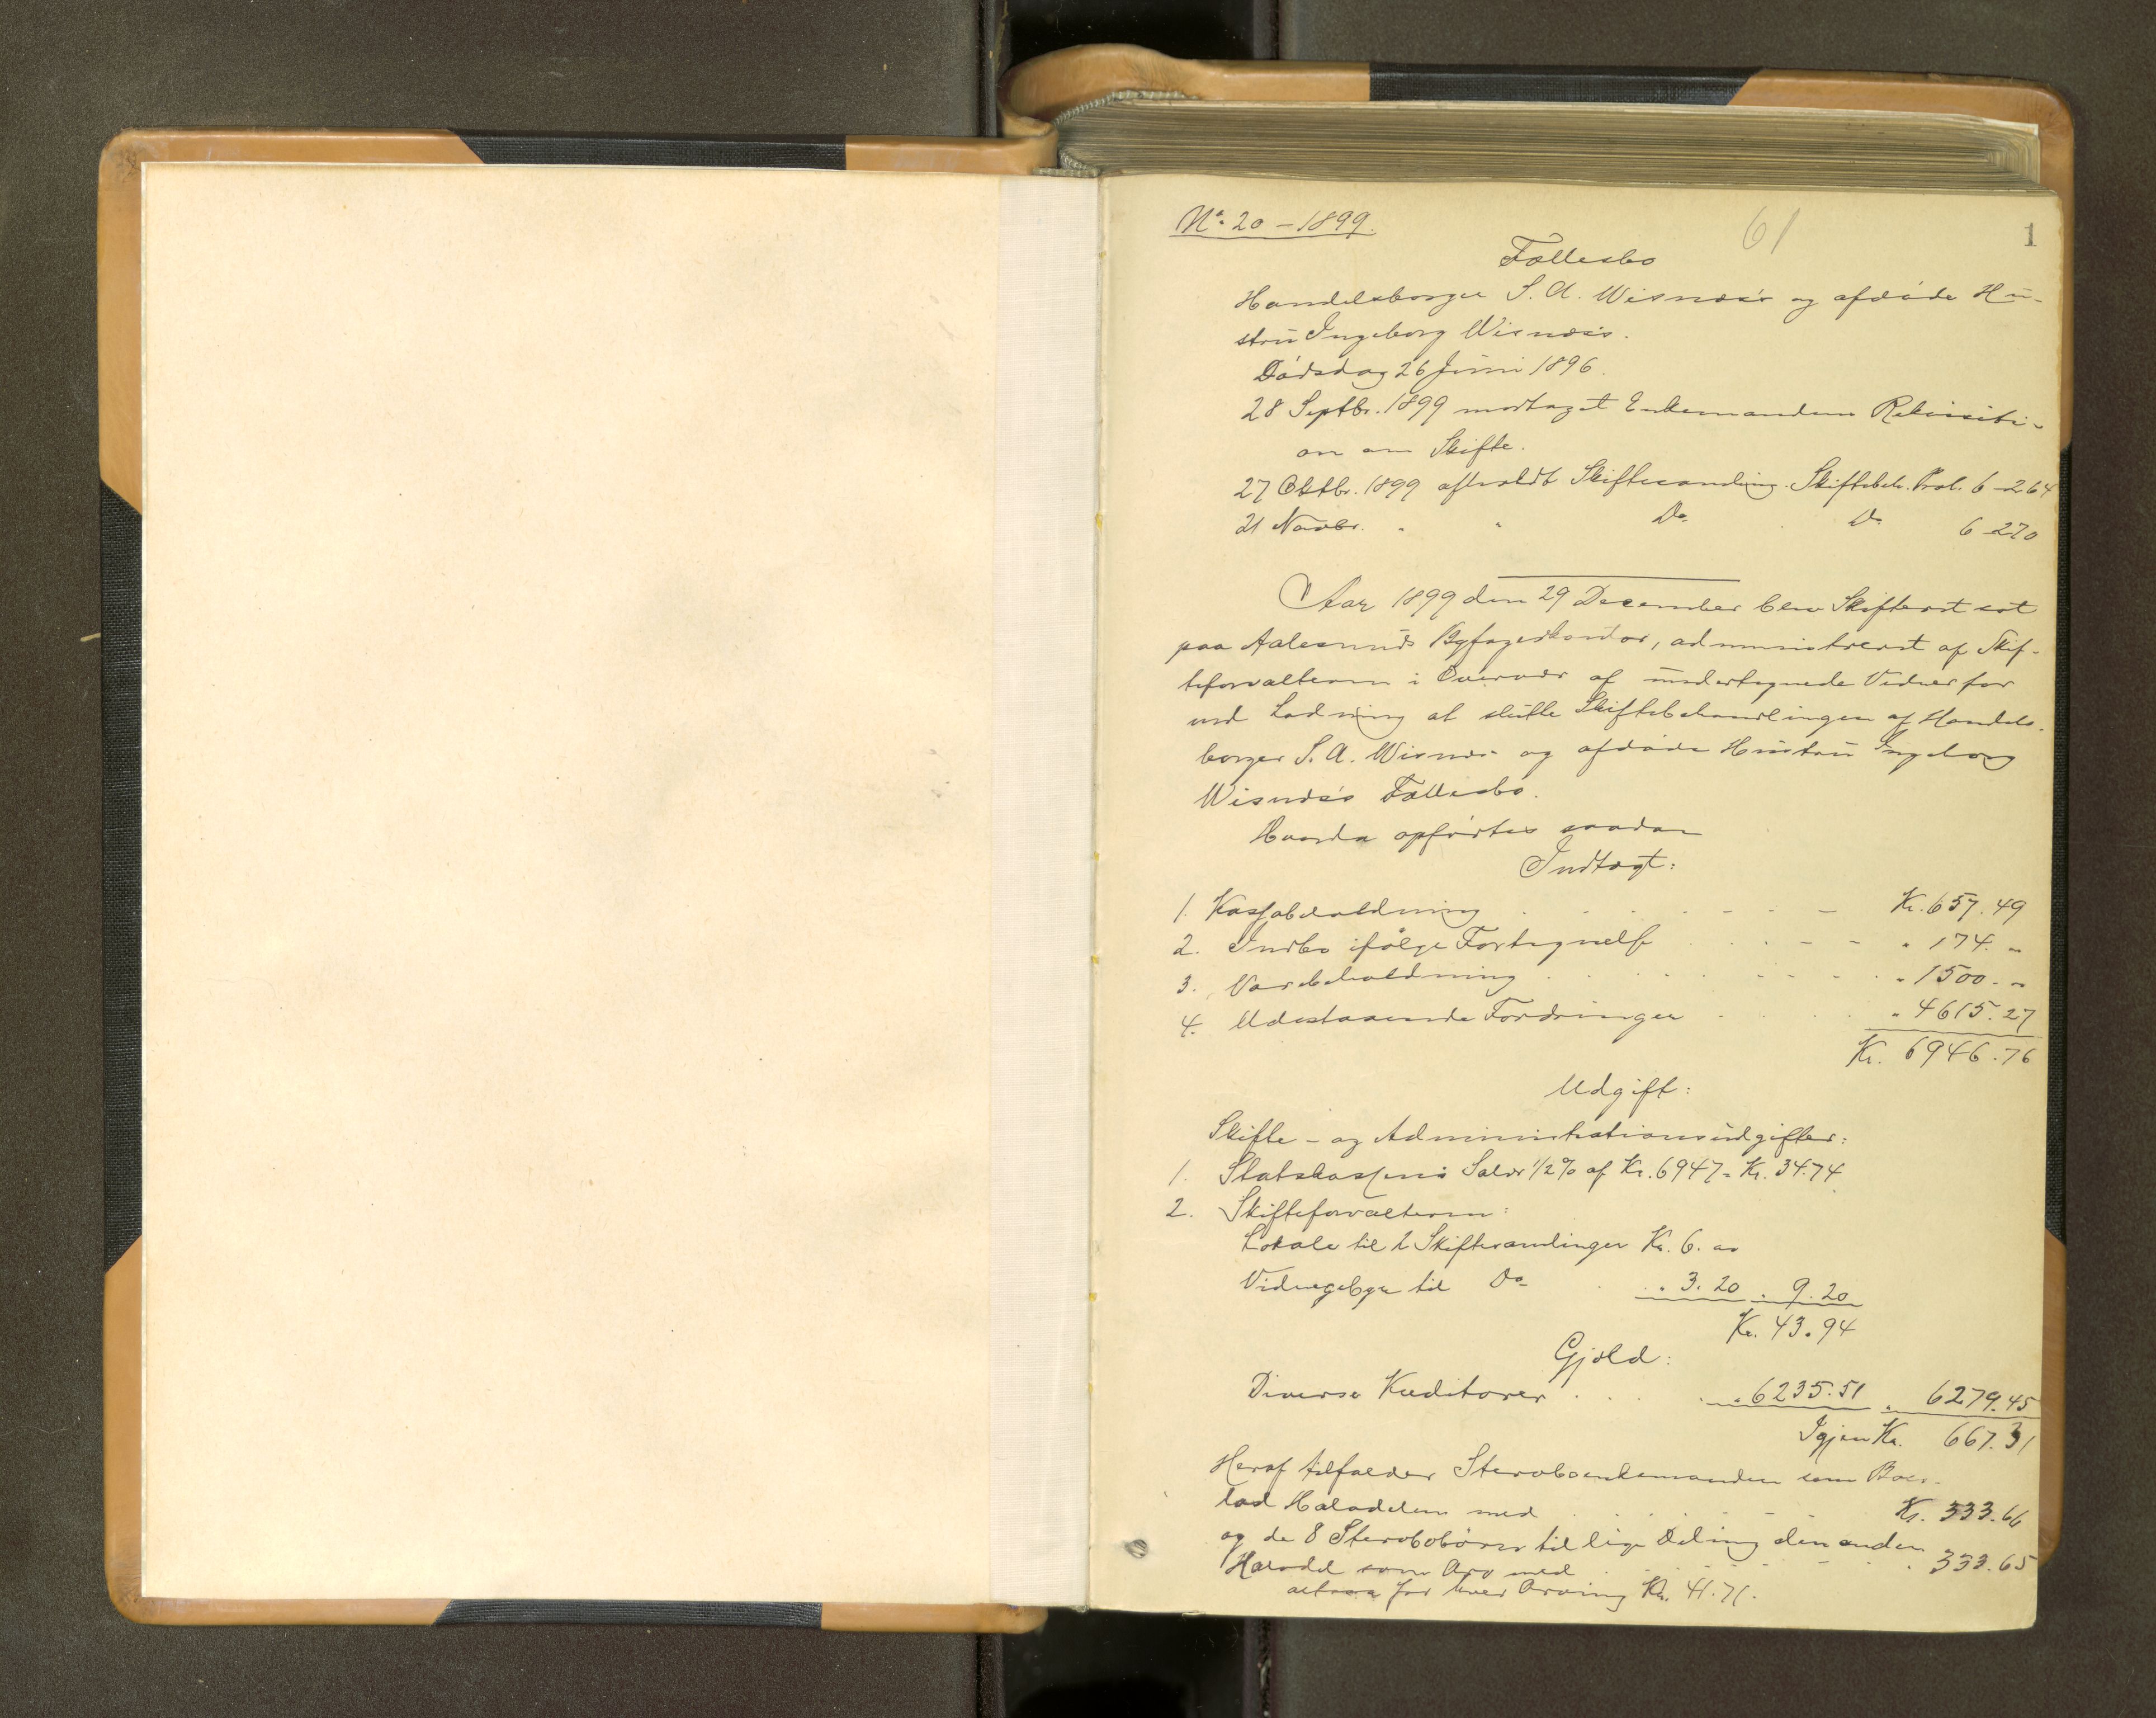 No. 20 – 1899.
61
1
Fællesbo
Handelsborger S. A. Wisnæs's og afdøde Hu-
stru Ingeborg Wisnæs's.
Dødsdag 26 Juni 1896.
28 Septbr. 1899 modtaget Enkemandens Rekvisiti-
on om Skifte.
27 Oktbr. 1899 afholdt Skiftesamling. Skiftebeh. Prot. 6 – 264
21 Novbr. " " Do. Do. 6 – 270
Aar 1899 den 29 December blev Skifteret sat
paa Aalesunds Byfogedkontor, administreret af Skif-
teforvalteren i Overvær af undertegnede Vidner for
ved Lodning at slutte Skiftebehandlingen af Handels-
borger S. A. Wisnæs og afdøde Hustru Ingeborg
Wisnæs's Fællesbo.
Hvorda opførtes saadan
Indtægt:
1. Kassabeholdning Kr. 657. 49
2. Indbo ifølge Fortegnelse " 174. "
3. Varebeholdning " 1500. "
4. Udestaaende Fordringer " 4615. 27
Kr. 6946. 76
Udgift:
Skifte- og Administrationsudgifter:
1. Statskassens Salær 1/2 % af Kr. 6947 = Kr. 34.74
2. Skifteforvalteren:
Lokale til 2 Skiftesamlinger Kr. 6. 00
Vidnegebyr til Do. " 3. 20 " 9. 20
Kr. 43. 94
Gjæld:
Diverse Kreditorer " 6235. 51 " 6279. 45
Igjen Kr. 667. 31
Heraf tilfalder Stervboenkemanden som Boes-
lod Halvdelen med Kr. 333. 66
og de 8 Stervbobørn til lige Deling den anden
Halvdel som Arv med " 333. 65
altsaa for hver Arving Kr. 41. 71.